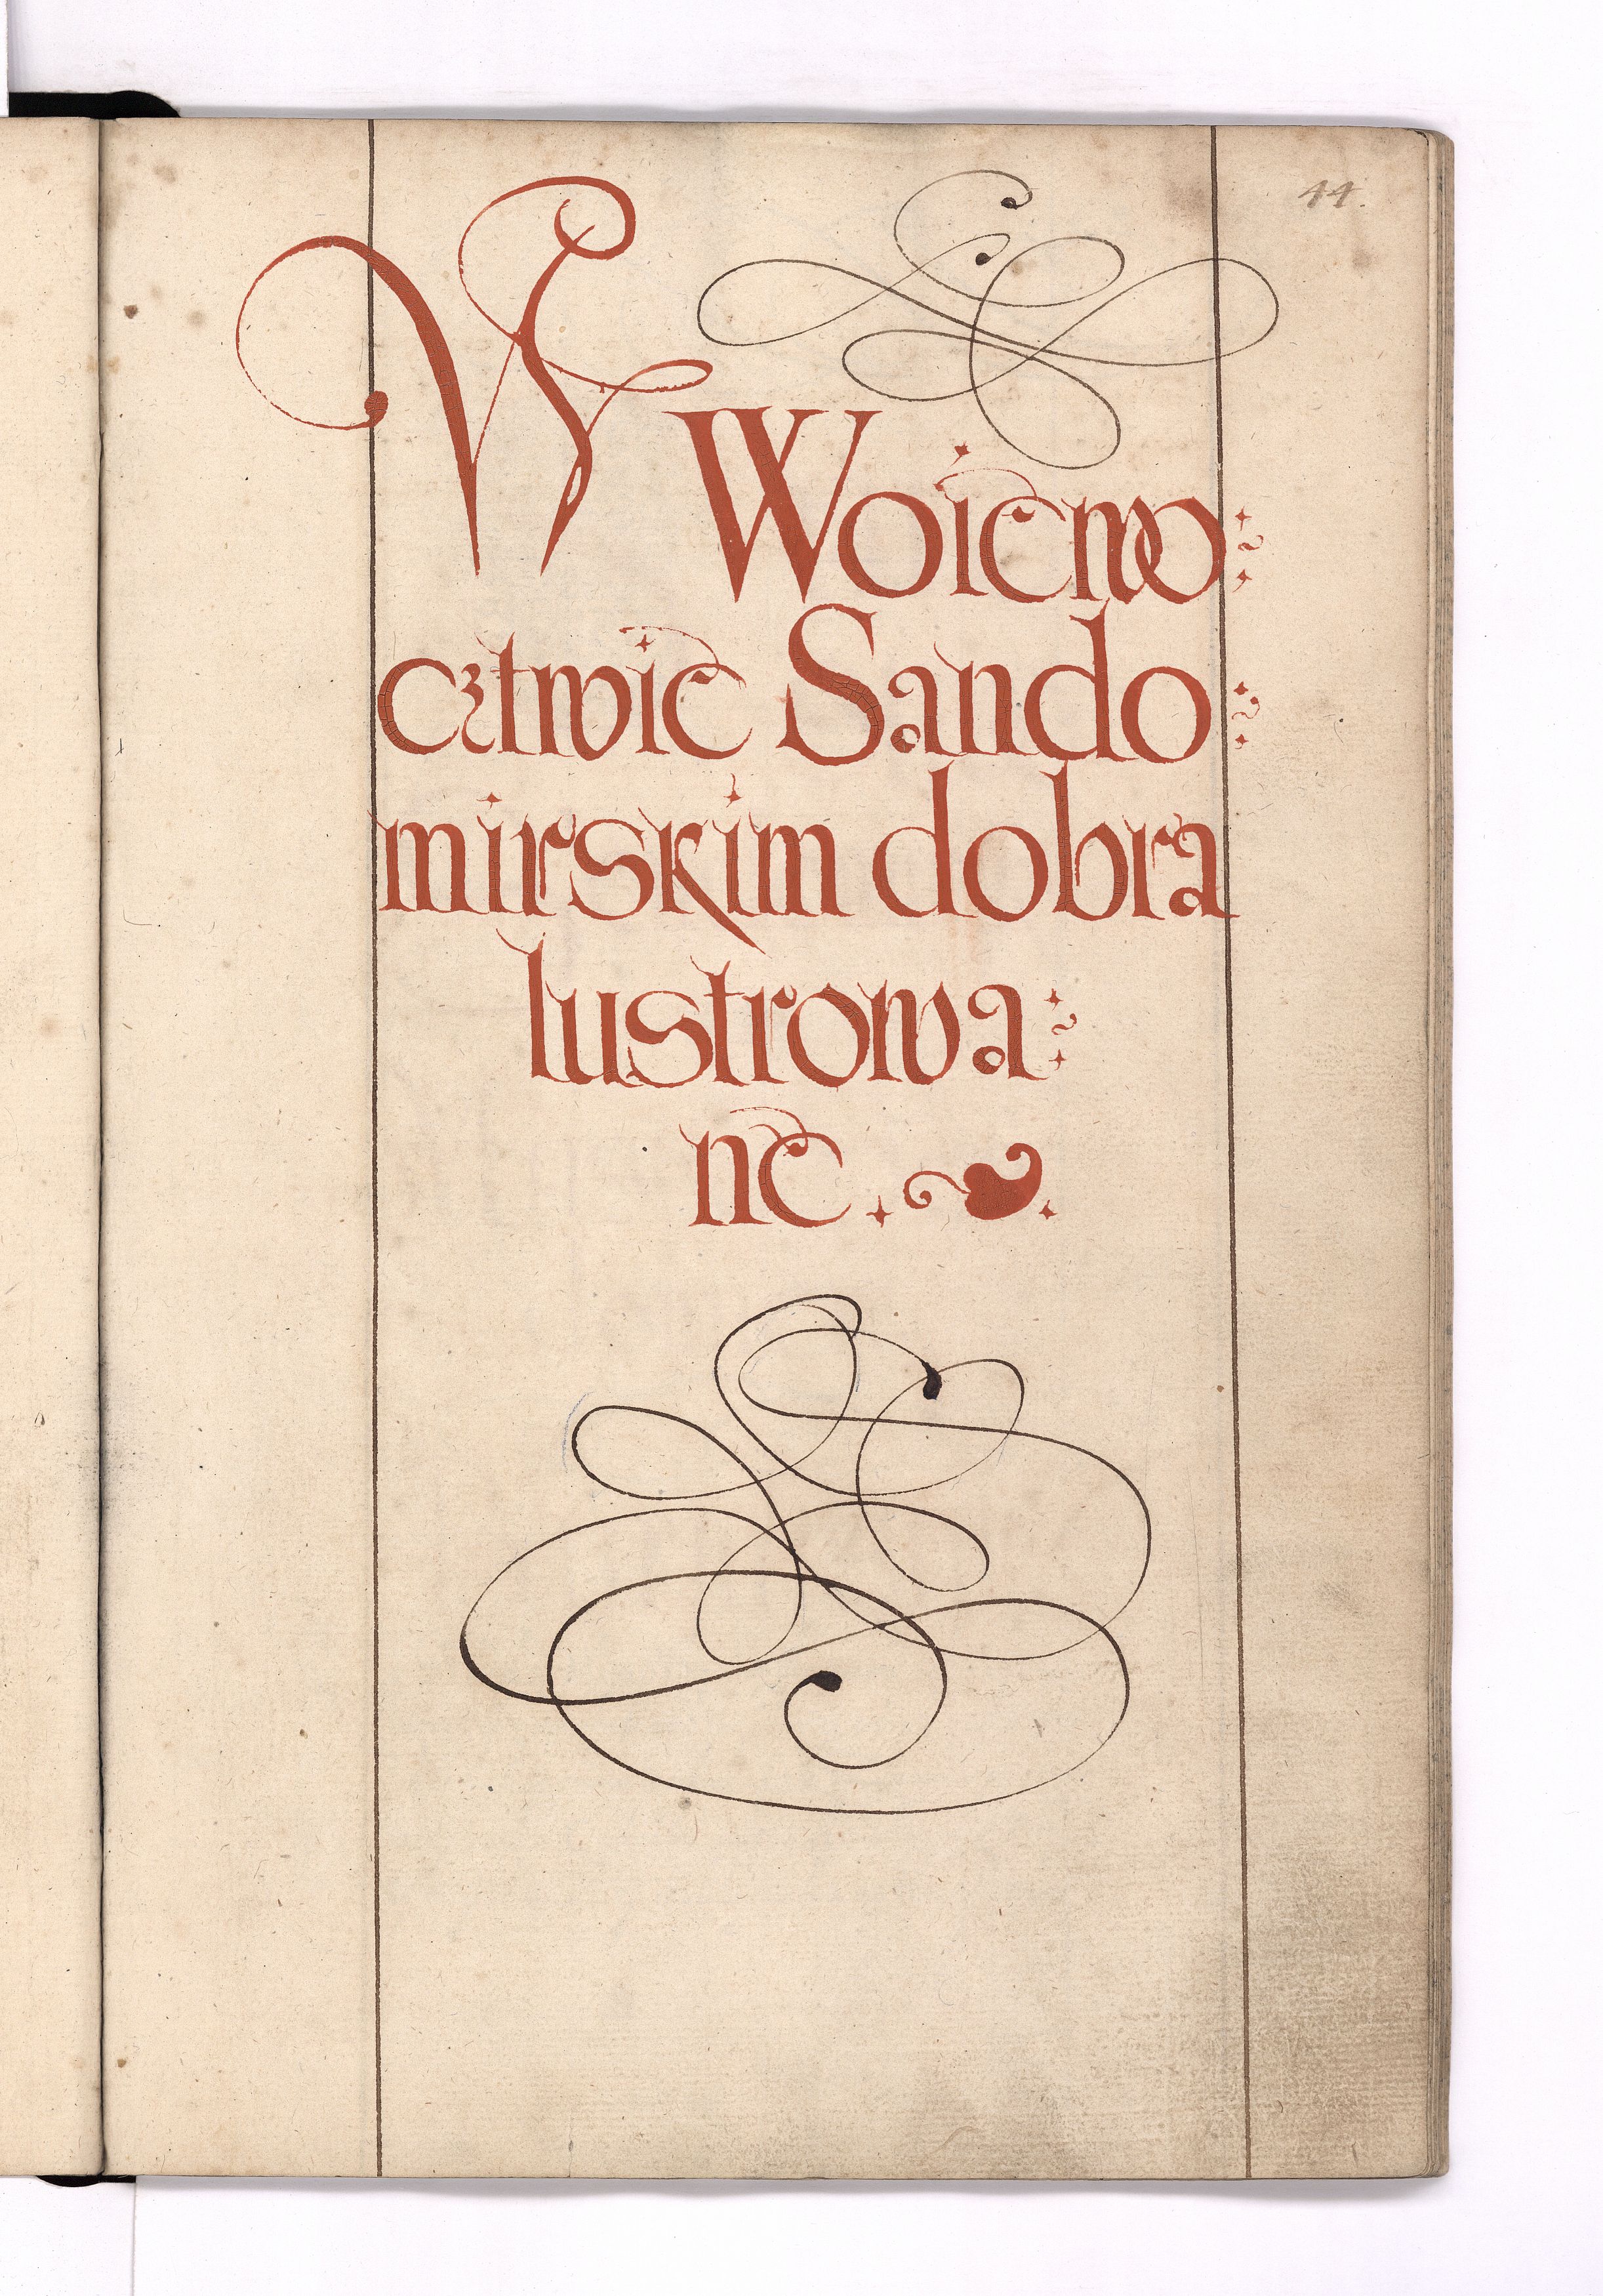 44.
W Woiewo:
cztwie Sando:
mirskim dobra
lustrowa:
ne.